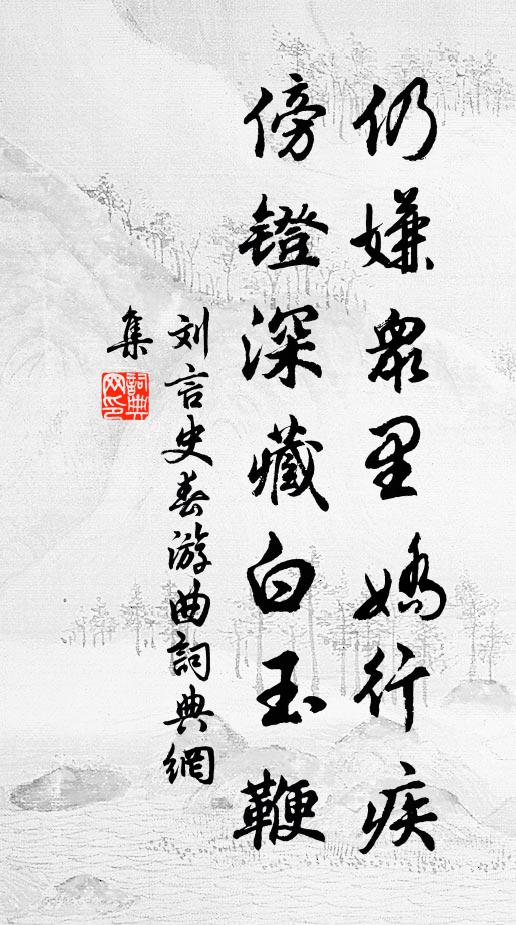 仍嫌眾里嬌行疾
傍鐙深藏白玉鞭
刘言史春游曲詞典網
集
詞典
网印